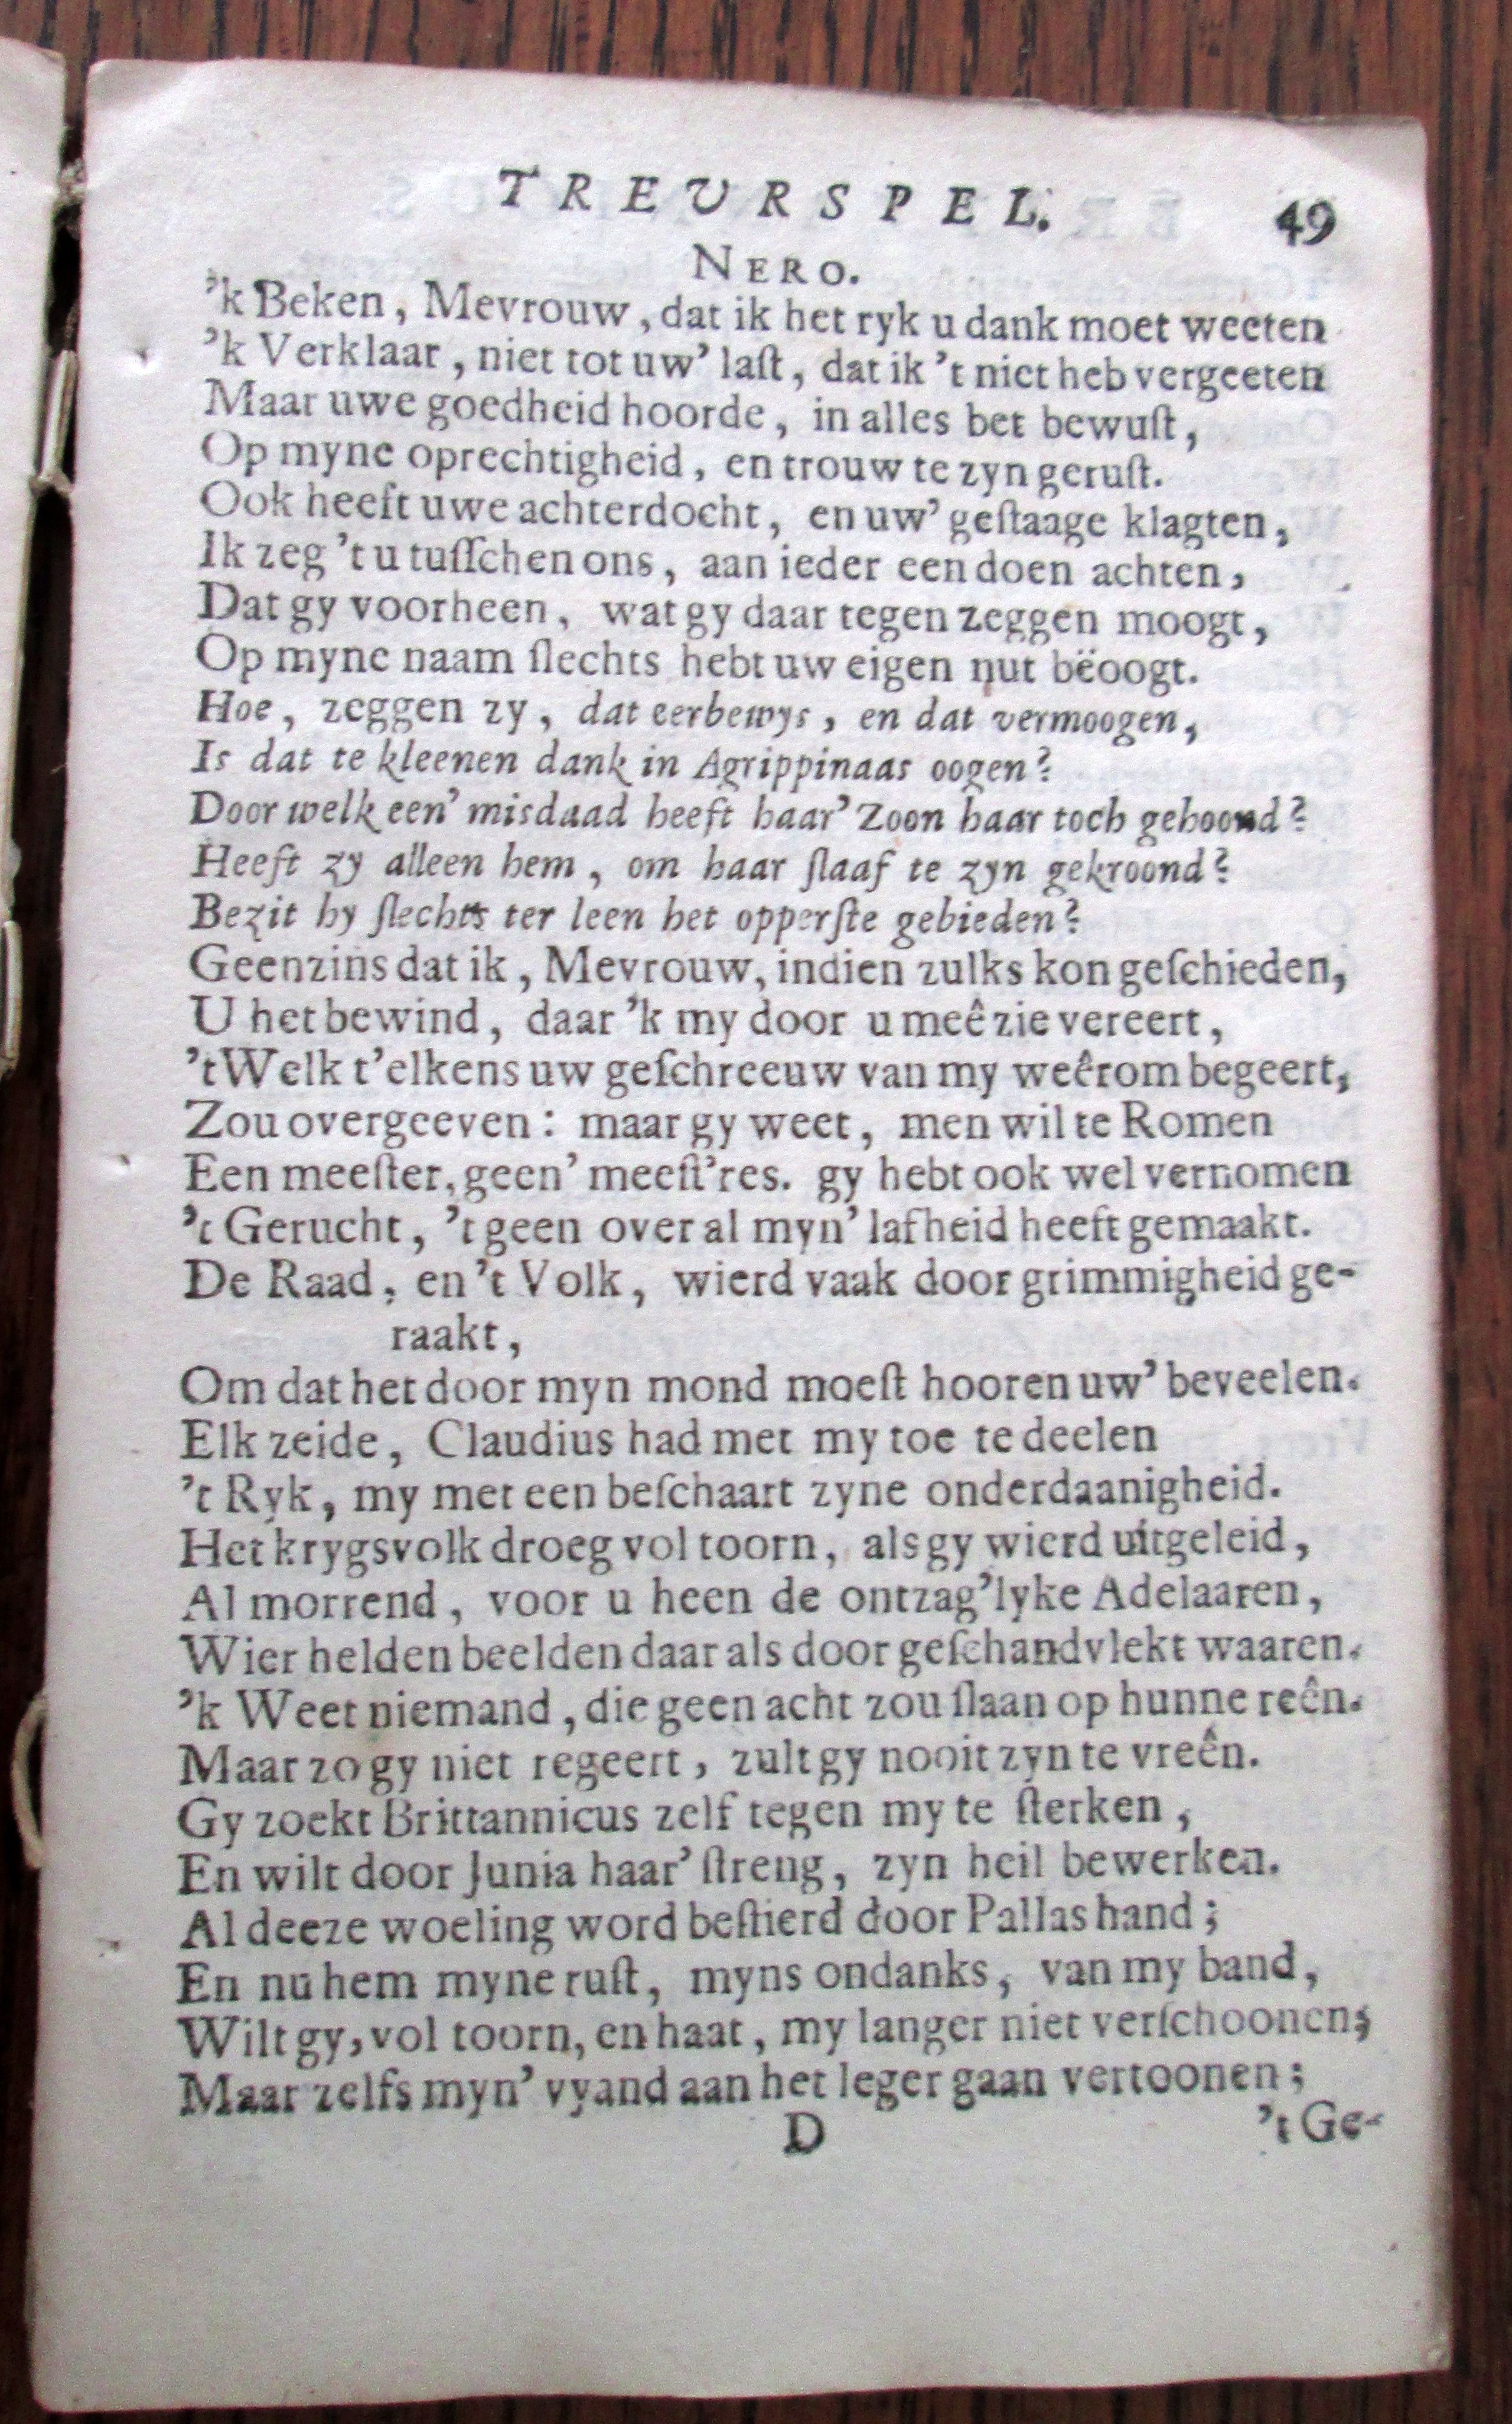 TREURSPEL. 49
NERO.
’k Beken, Mevrouw, dat ik het ryk u dank moet weeten
’k Verklaar, niet tot uw’ laſt, dat ik ’t niet heb vergeeten
Maar uwe goedheid hoorde, in alles bet bewuſt,
Op myne oprechtigheid, en trouw te zyn geruſt.
Ook heeft uwe achterdocht, en uw’ geſtaage klagten,
Ik zeg ’t u tuſſchen ons, aan ieder een doen achten,
Dat gy voorheen, wat gy daar tegen zeggen moogt,
Op myne naam ſlechts hebt uw eigen nut bëoogt.
Hoe, zeggen zy, dat eerbewys, en dat vermoogen,
Is dat te kleenen dank in Agrippinaas oogen?
Door welk een’ misdaad heeft haar’ Zoon haar toch gehoond?
Heeft zy alleen hem, om haar ſlaaf te zyn gekroond?
Bezit hy ſlechts ter leen het opperſte gebieden?
Geenzins dat ik, Mevrouw, indien zulks kon geſchieden,
U het bewind, daar ’k my door u meê zie vereert,
’t Welk t’elkens uw geſchreeuw van my weêrom begeert,
Zou overgeeven: maar gy weet, men wil te Romen
Een meeſter, geen’ meeſt’res. gy hebt ook wel vernomen
’t Gerucht, ’t geen over al myn’ lafheid heeft gemaakt.
De Raad, en ’t Volk, wierd vaak door grimmigheid ge-
raakt,
Om dat het door myn mond moeſt hooren uw’ beveelen.
Elk zeide, Claudius had met my toe te deelen
’t Ryk, my met een beſchaart zyne onderdaanigheid.
Het krygsvolk droeg vol toorn, als gy wierd uitgeleid,
Al morrend, voor u heen de ontzag’lyke Adelaaren,
Wier helden beelden daar als door geſchandvlekt waaren.
’k Weet niemand, die geen acht zou ſlaan op hunne reên.
Maar zo gy niet regeert, zult gy nooit zyn te vreên.
Gy zoekt Brittannicus zelf tegen my te ſterken,
En wilt door Junia haar’ ſtreng, zyn heil bewerken.
Al deeze woeling word beſtierd door Pallas hand;
En nu hem myne ruſt, myns ondanks, van my band,
Wilt gy, vol toorn, en haat, my langer niet verſchoonen;
Maar zelfs myn’ vyand aan het leger gaan vertoonen;
D ’t Ge-